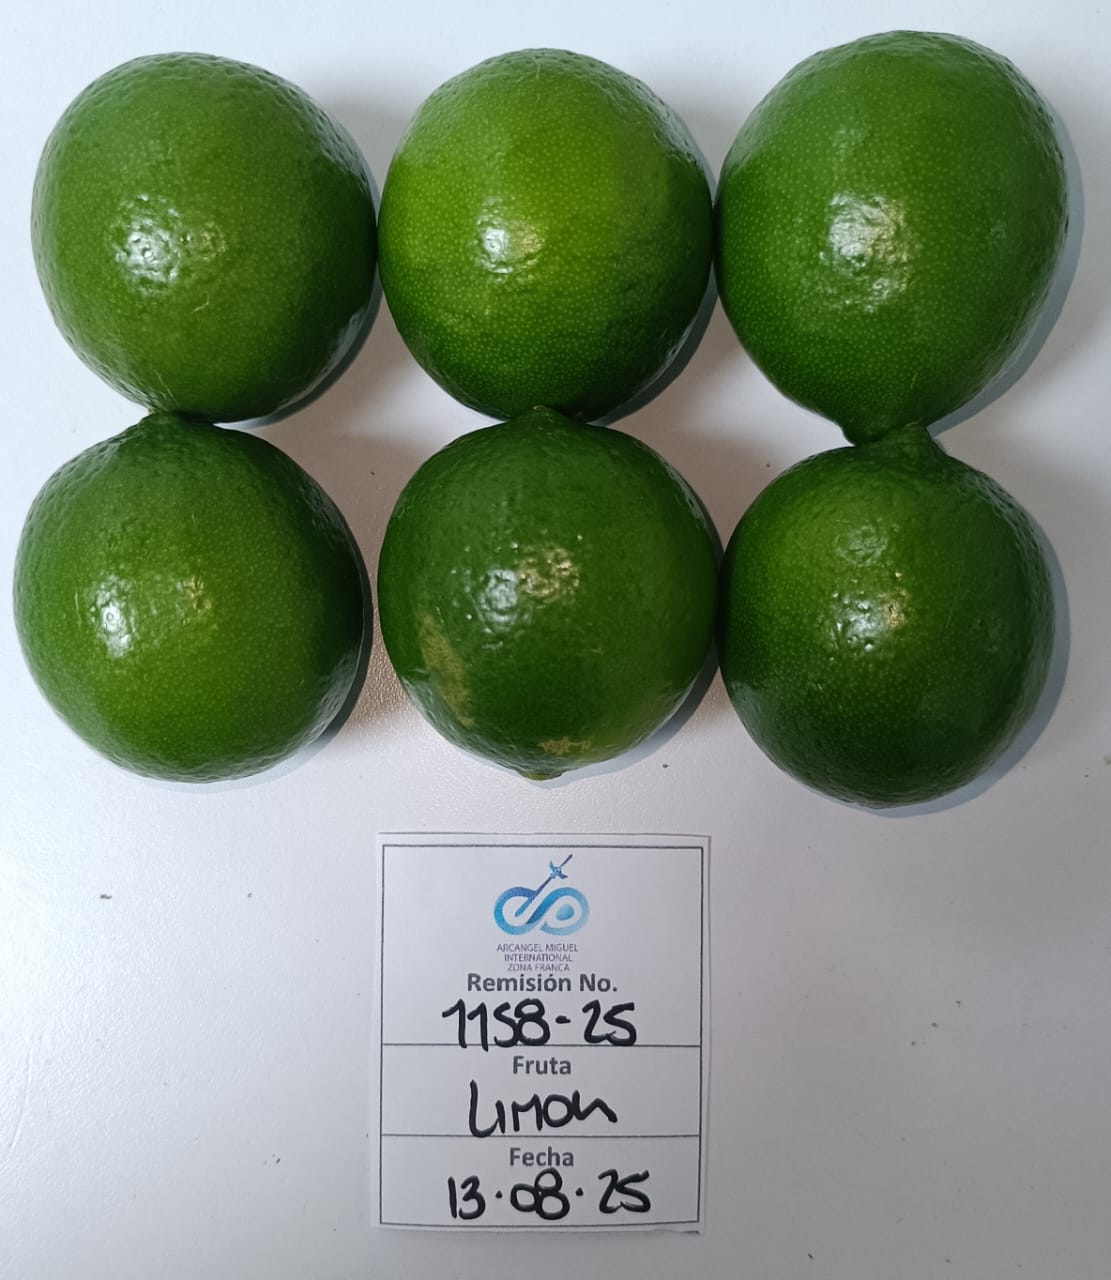 ARCANGEL MIGUEL
INTERNATIONAL
ZONA FRANCA
Remisión No.
1158-25
Fruta
Limon
Fecha
13.08.25